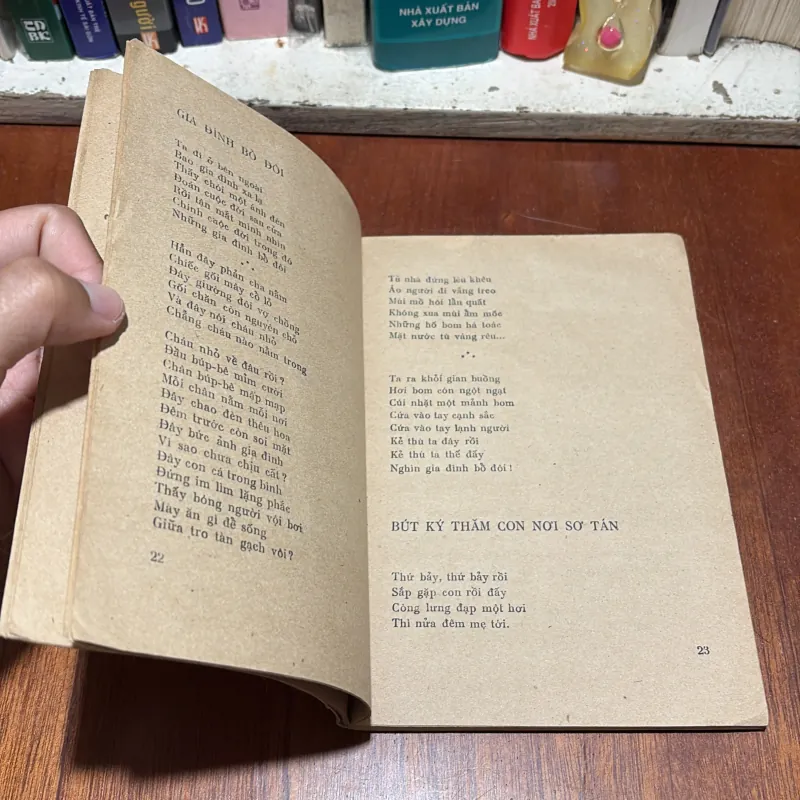 NHÀ XUẤT BẢN
XÂY DỰNG
GIA ĐÌNH BỒ ĐÔI
Ta đi ở bên ngoài
Bao gia đình xa lạ
Thấy chói một ánh đèn
Đoán cuộc đời sau cửa
Rồi tận mắt mình nhìn
Chính cuộc đời trong đó
Những gia đình bồ đôi
Hẳn đây phản cha nằm
Chiếc gối mây cồ lỗ
Đáy giường đôi vợ chồng
Gối chăn còn nguyên chỗ
Và đáy nôi cháu nhỏ
Chẳng cháu nào nằm trong
Cháu nhỏ về đâu rồi ?
Đầu búp-bê mỉm cười
Chân búp-bê mập mạp
Mỗi chân nằm mỗi nơi
Đây chao đèn thêu hoa
Đêm trước còn soi mặt
Đây bức ảnh gia đình
Vì sao chưa chịu cất ?
Đây con cá trong bình
Đứng im lìm lặng phắc
Thấy bóng người vội bơi
Mày ăn gì để sống
Giữa tro tàn gạch vôi ?
22
Tủ nhà đứng lêu khêu
Áo người đi vắng treo
Mùi mồ hôi lẩn quất
Không xua mùi ẩm mốc
Những hố bom há toác
Mặt nước tù váng rêu...
Ta ra khỏi gian buồng
Hơi bom còn ngột ngạt
Cúi nhặt một mảnh bom
Cứa vào tay cạnh sắc
Cứa vào tay lạnh người
Kẻ thù ta đây rồi
Kẻ thù ta thế đấy
Nghìn gia đình bồ đôi !
BÚT KÝ THĂM CON NƠI SƠ TÁN
Thứ bảy, thứ bảy rồi
Sắp gặp con rồi đấy
Còng lưng đạp một hơi
Thì nửa đêm mẹ tới.
23